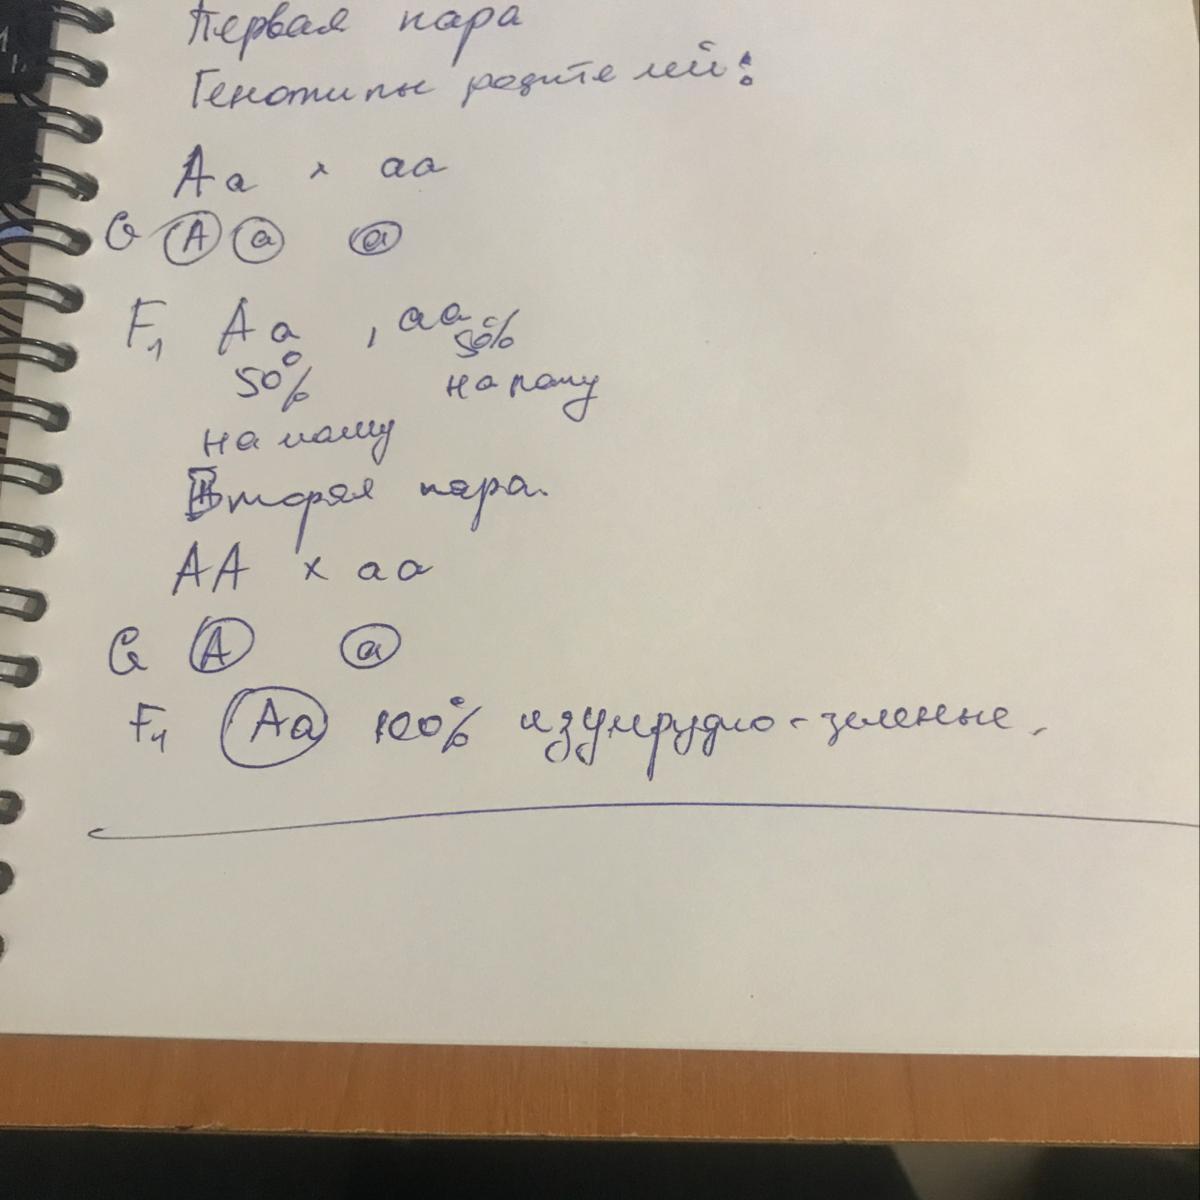 Первая пара
Генотипы родителей:
Аа × аа
G А а а
F1 Аа , аа
50% 50%
на папу
на маму
Вторая пара.
АА × аа
G А а
F1 Аа 100% изумрудно-зеленые.